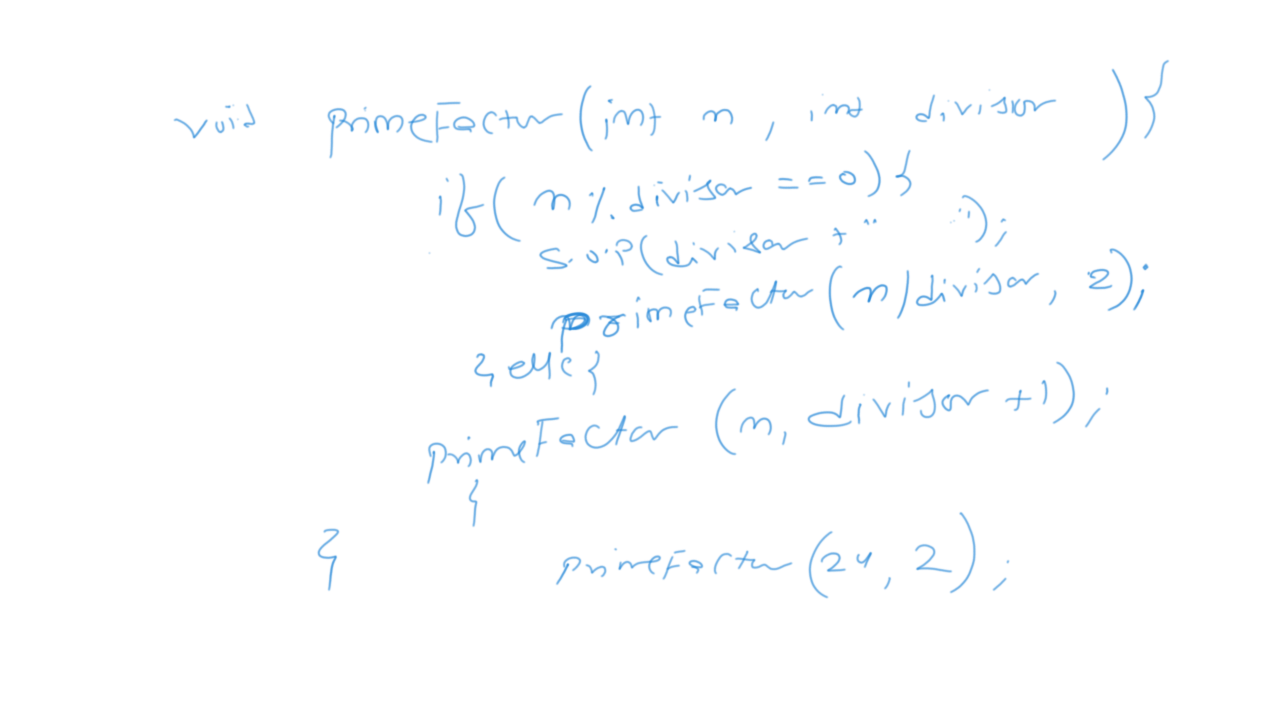 void primeFactor(int n, int divisor ){
if( n % divisor ==0){
S.O.P(divisor + " ");
primeFactor(n/divisor, 2);
} else{
primeFactor (n, divisor +1);
}
} primeFactor(24, 2);